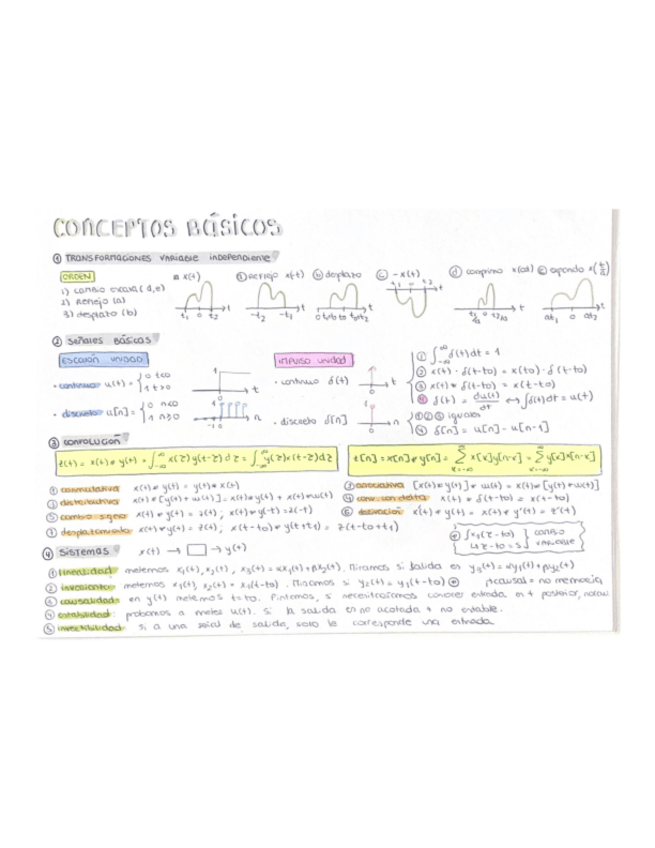 CONCEPTOS BÁSICOS
① TRANSFORMACIONES VARIABLE INDEPENDIENTE
ORDEN
1) cambio escala (d,e)
2) Reflejo (a)
3) desplazo (b)
x(t)
ⓐ Reflejo x(-t)
ⓑ desplazo
ⓒ -x(t)
ⓓ comprimo x(at)
ⓔ expando x(t/a)
② SEÑALES BÁSICAS
ESCALÓN UNIDAD
· continuo u(t) = { 0 t<0
1 t>0
· discreto u[n] = { 0 n<0
1 n≥0
IMPULSO UNIDAD
· continuo δ(t)
· discreto δ[n]
① ∫_{-∞}^{∞} δ(t)dt = 1
② x(t) · δ(t-to) = x(to) · δ(t-to)
③ x(t) * δ(t-to) = x(t-to)
④ δ(t) = du(t)/dt ↔ ∫δ(t)dt = u(t)
①②③ iguales
④ δ[n] = u[n] - u[n-1]
③ CONVOLUCIÓN
z(t) = x(t) * y(t) = ∫_{-∞}^{∞} x(τ)y(t-τ)dτ = ∫_{-∞}^{∞} y(τ)x(t-τ)dτ
z[n] = x[n] * y[n] = Σ_{k=-∞}^{∞} x[k]y[n-k] = Σ_{k=-∞}^{∞} y[k]x[n-k]
① conmutativa x(t) * y(t) = y(t) * x(t)
② asociativa [x(t) * y(t)] * w(t) = x(t) * [y(t) * w(t)]
③ distributiva x(t) * [y(t) + w(t)] = x(t)*y(t) + x(t)*w(t)
④ conv. con delta x(t) * δ(t-to) = x(t-to)
⑤ cambio signo x(t) * y(t) = z(t) ; x(-t) * y(-t) = z(-t)
⑥ derivación x'(t) * y(t) = x(t) * y'(t) = z'(t)
⑦ desplazamiento x(t) * y(t) = z(t) ; x(t-to) * y(t+t1) = z(t-to+t1)
∫x1(τ-to)
τ-to = s } cambio
variable
④ SISTEMAS x(t) → → y(t)
① linealidad metemos x1(t), x2(t), x3(t) = αx1(t) + βx2(t). Miramos si salida en y3(t) = αy1(t) + βy2(t)
② invariante metemos x1(t), x2(t) = x1(t-to). Miramos si y2(t) = y1(t-to)
③ causalidad en y(t) metemos t=to. Pintemos, si necesitásemos conocer entrada en t posterior, nocau
④ estabilidad: probamos a meter u(t). Si la salida en no acotada → no estable.
⑤ invertibilidad: si a una señal de salida, solo le corresponde una entrada